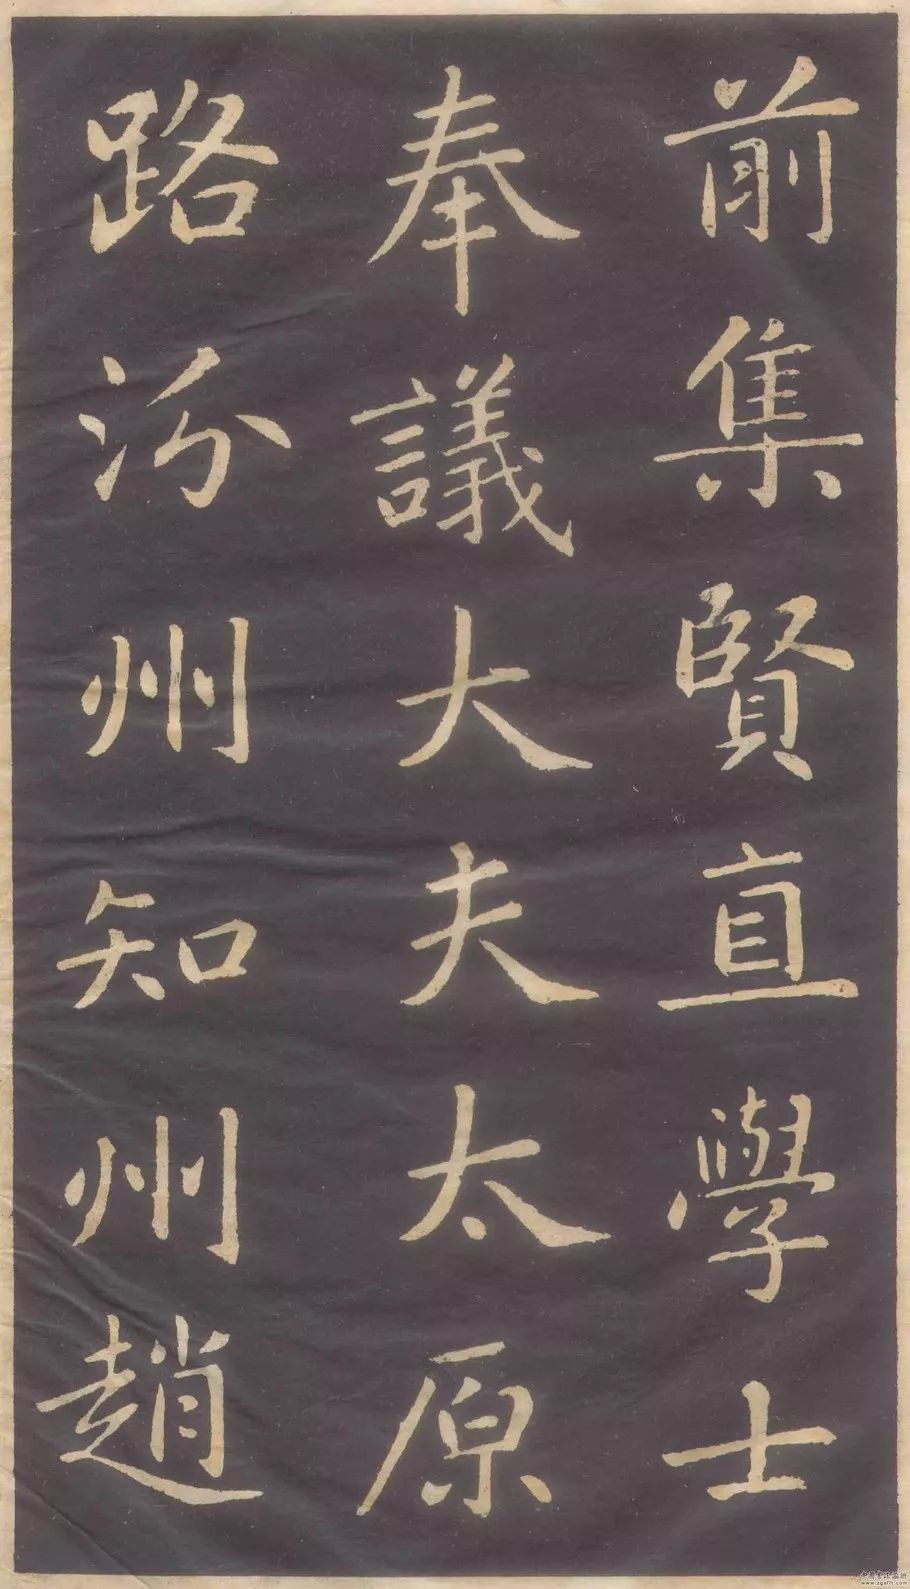 前集賢直學士
奉議大夫太原
路汾州知州趙